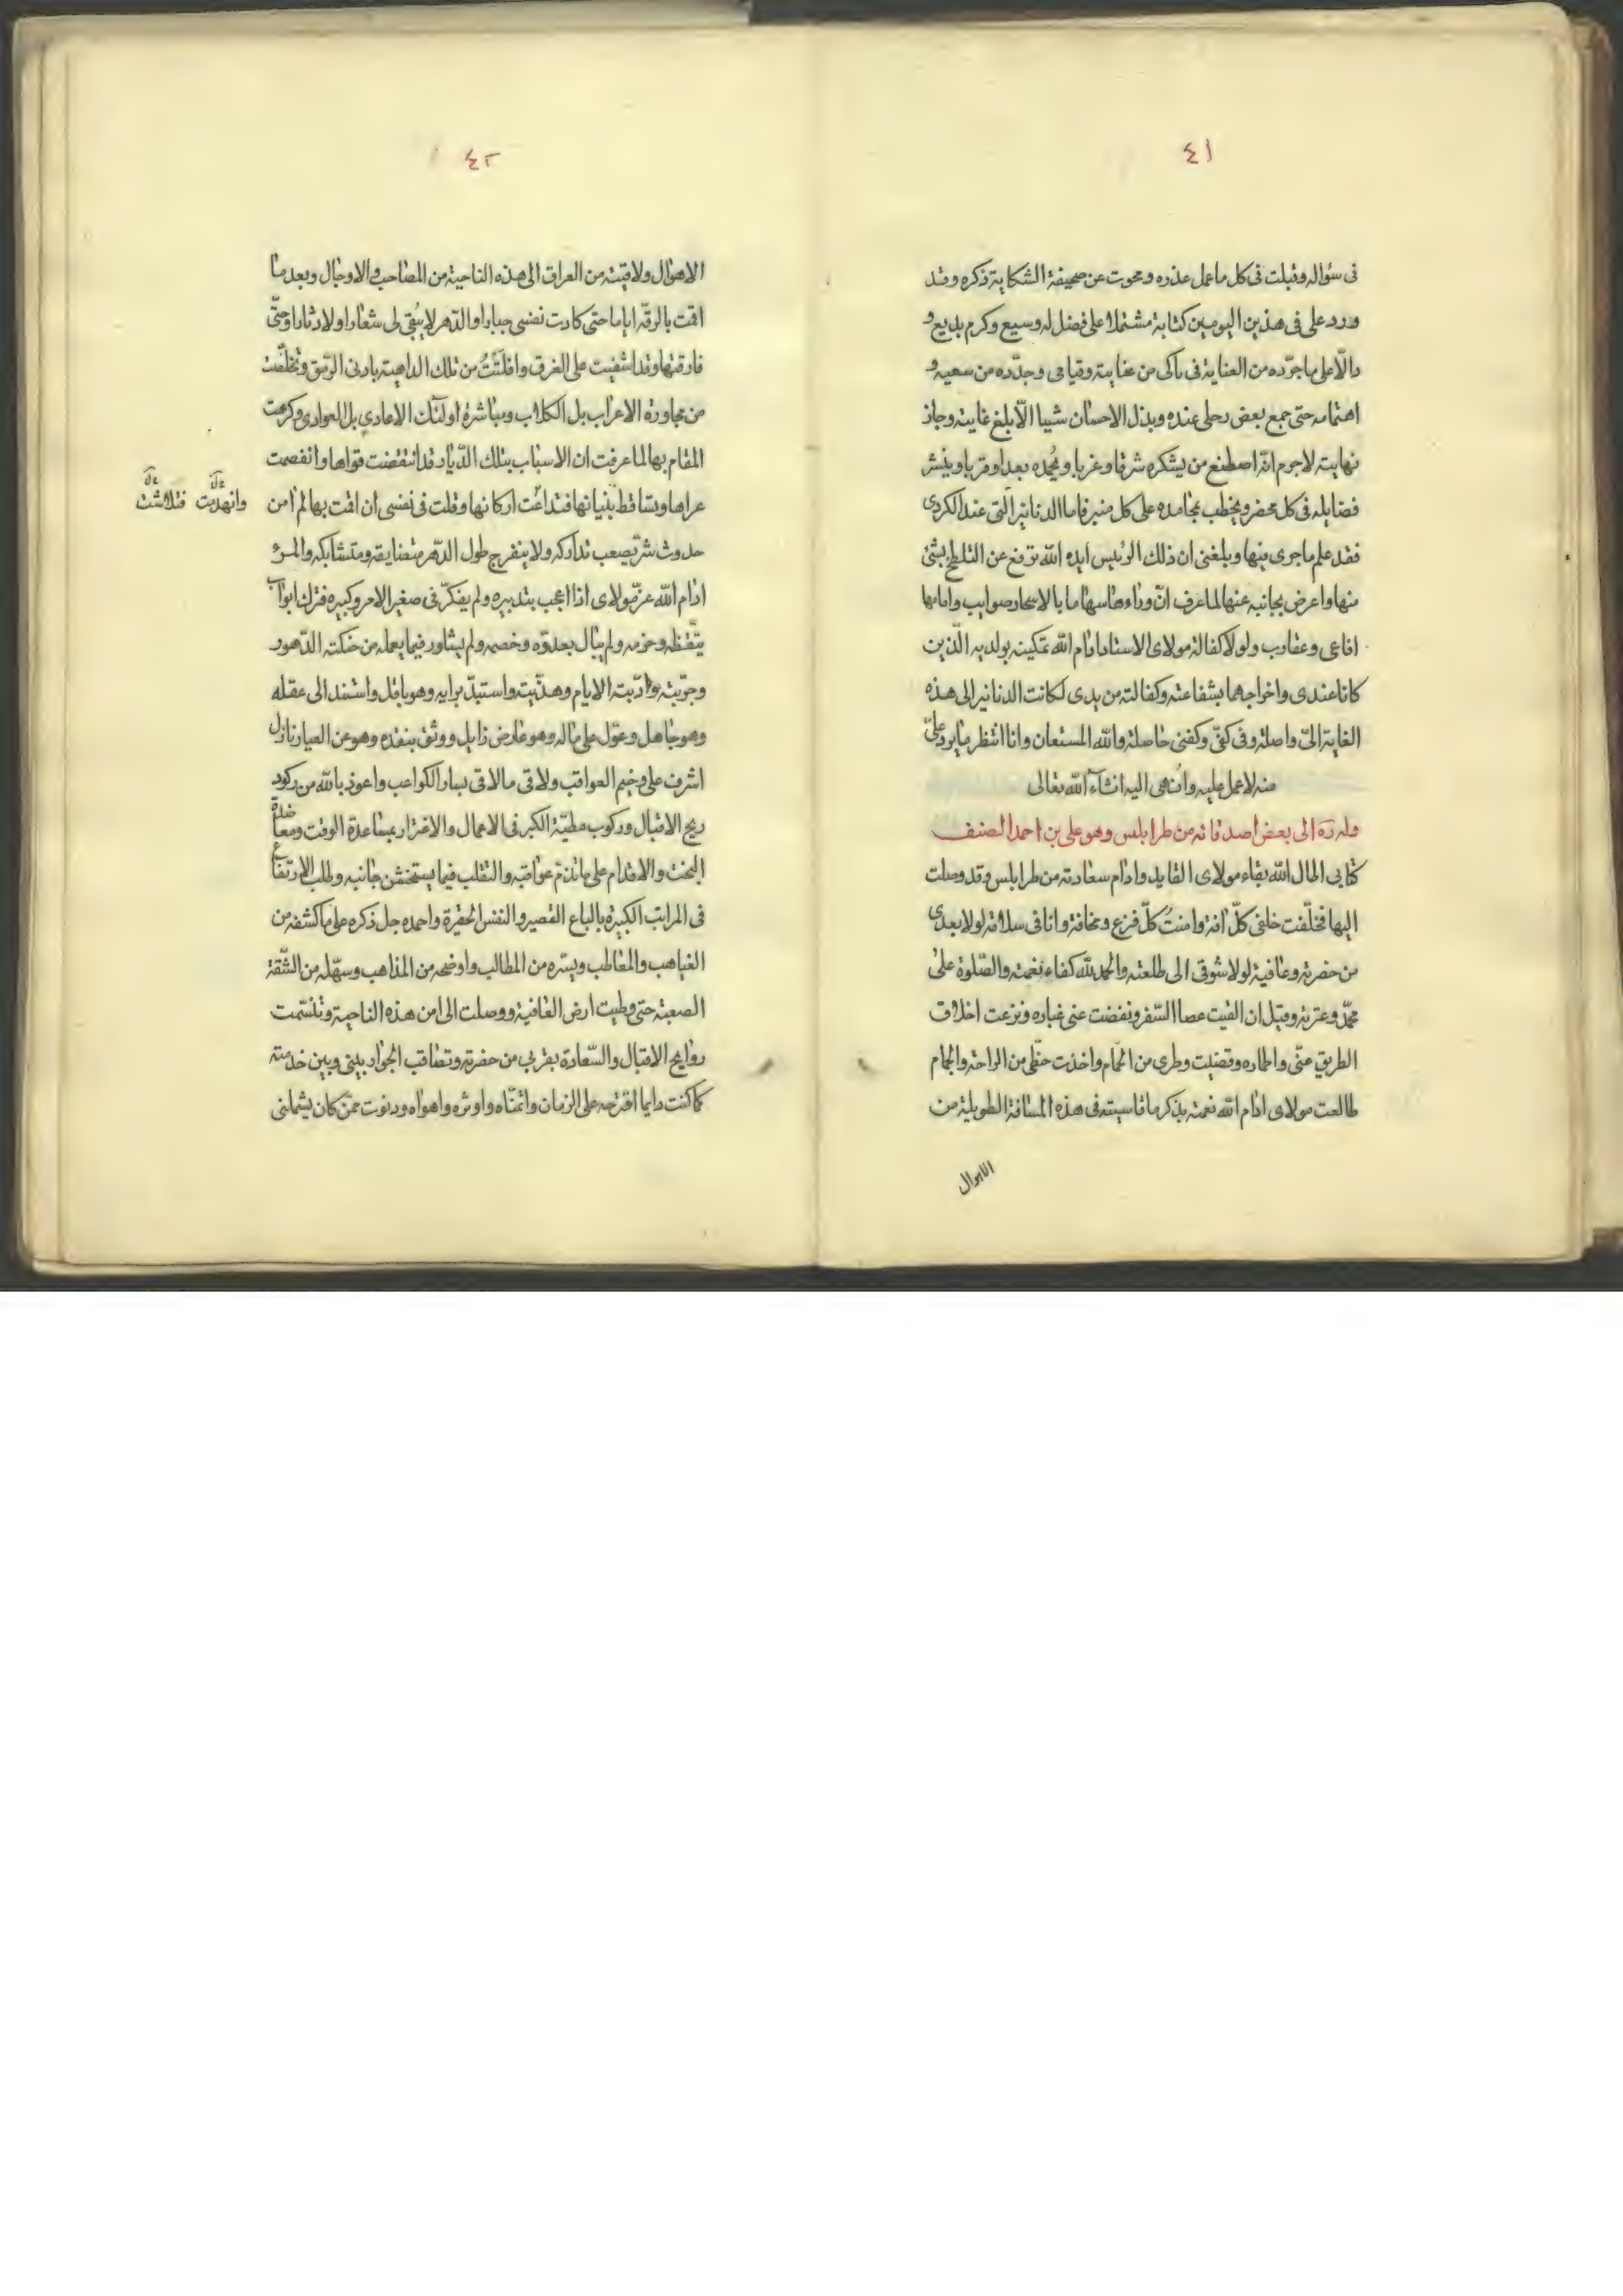 ٤١
فى سؤاله وقبلت فى كل ما عمل عذره ومحوت عن صحيفة الشكاية ذكره وقد
ورد على فى هذين اليومين كتابة مشتملا على فضل له وسيع وكرم بديع و
دالّا على ما جرّده من العناية فى من عنايته وقيامى وجدّده من سعيه و
اهتمامه حتى جمع بعض رحلى عنده وبذل الاحسان شيبا الّا بلغ غايته وجاز
نهايته لاجرم انّه اصطنع من يشكره شرقا وغربا ويحمده بعدا وقربا وينشر
فضايله فى كل محضر ويخطب بمحامده على كل منبر فاما الدنانير الّتى عند الكردى
فقد علم ماجرى فيها وبلغنى ان ذلك الرئيس ايده الله ترفع عن التلطخ بشئ
منها واعرض بجانبه عنها لما عرف انّ وراءها سهاما بالاسحار صوايب وامامها
افاعى وعقارب ولولا كفالة مولاى الاستاد ادام الله تمكينه بولديه الّذين
كانا عندى واخراجهما بشفاعته وكفالته من يدى لكانت الدنانير الى هذه
الغاية الىّ واصلة وفى كفىّ وكفنى حاصلة والله المستعان وانا انتظر ما يرد علىّ
منه لاعمل عليه وانهى اليه انشاء الله تعالى
وله ره الى بعض اصدقائه من طرابلس وهو على بن احمد المصنف
كتابى اطال الله بقاء مولاى القايد وادام سعادته من طرابلس وقد وصلت
اليها فخلّفت خلفى كلّ افة وامنتُ كلّ فزع ومخافة وانا فى سلامة لولا بعدى
من حضرته وعافية لولا شوقى الى طلعته والحمد لله كفاء نعمته والصّلوة على
محمّد وعترته وقبل ان القيت عصا السّفر ونفضت عنى غباره ونزعت اخلاق
الطريق عنّى واطماره وقضيت وطرى من الحمّام واخذت حظّى من الراحة والجمام
طالعت مولاى ادام الله نعمته بذكر ما قاسيته فى هذه المسافة الطويلة من
الاهوال
٤٢
الاهوال ولاقيته من العراق الى هذه الناحية من المصاحب والاوجال وبعد ما
اقمت بالرقّة اياما حتى كادت نفسى جبارا والدّهر لا يُبقى لى شعارا ولادثارا وحتّى
فارقتها وقد اشفيت على الغرق وافلتّتُ من تلك الداهية بادنى الرّمق وتخلّفت
من مجاورة الاعراب بل الكلاب ومباشرة اولئك الاعادي بل العوادى وكرهت
المقام بها لما عرفت ان الاسباب بتلك الدّيار قد انتقضت قواها وانفصمت
عراها وتساقط بنيانها فتداعت اركانها وقلت فى نفسى ان اقمت بها لم امن
وانهدمت فتلاشت
حدوث شرّ يصعب تداركه ولا ينفرج طول الدّهر متضايقه ومتشابكه والمرء
ادام الله عزّ مولاى اذا اعجب بتدبيره ولم يفكّر فى صغير الامر وكبيره فترك ابواب
تيقّظه وحزمه ولم يبال بعدوّه وخصمه ولم يشاور فيما يعمله من حنكته الدّهور
وجرّبته وادّبته الايام وهذّبته واستبدّ برايه وهو باقل واستند الى عقله
وهو جاهل وعوّل على ماله وهو عارض زايل ووثق بنقده وهو عن العيار نازل
اشرف على وخيم العواقب ولاقى مالاقى يسار الكواعب واعوذ بالله من ركود
ريح الاقبال وركوب مطيّة الكبر فى الاعمال والاغترار بمساعدة الوقت ومعاضدة
البخت والاقدام على ما تذمّ عواقبه والتقلب فيما يستخشن جانبه وطلب الارتفاع
فى المراتب الكبيرة بالباع القصير والنفس الحقيرة واحمده جل ذكره على ماكشفه من
الغياهب والمعاطب ويسّره من المطالب واوضحه من المذاهب وسهّله من الشّقّة
الصعبة حتى وطيت ارض العافية ووصلت الى امن هذه الناحية وتنسّمت
روايح الاقبال والسّعادة بقربى من حضرته وتصاقب الجوار بينى وبين خدمته
كما كنت دايما اقترحه على الزمان واتمنّاه واوثره واهواه ودنوت ممّن كان يشملنى